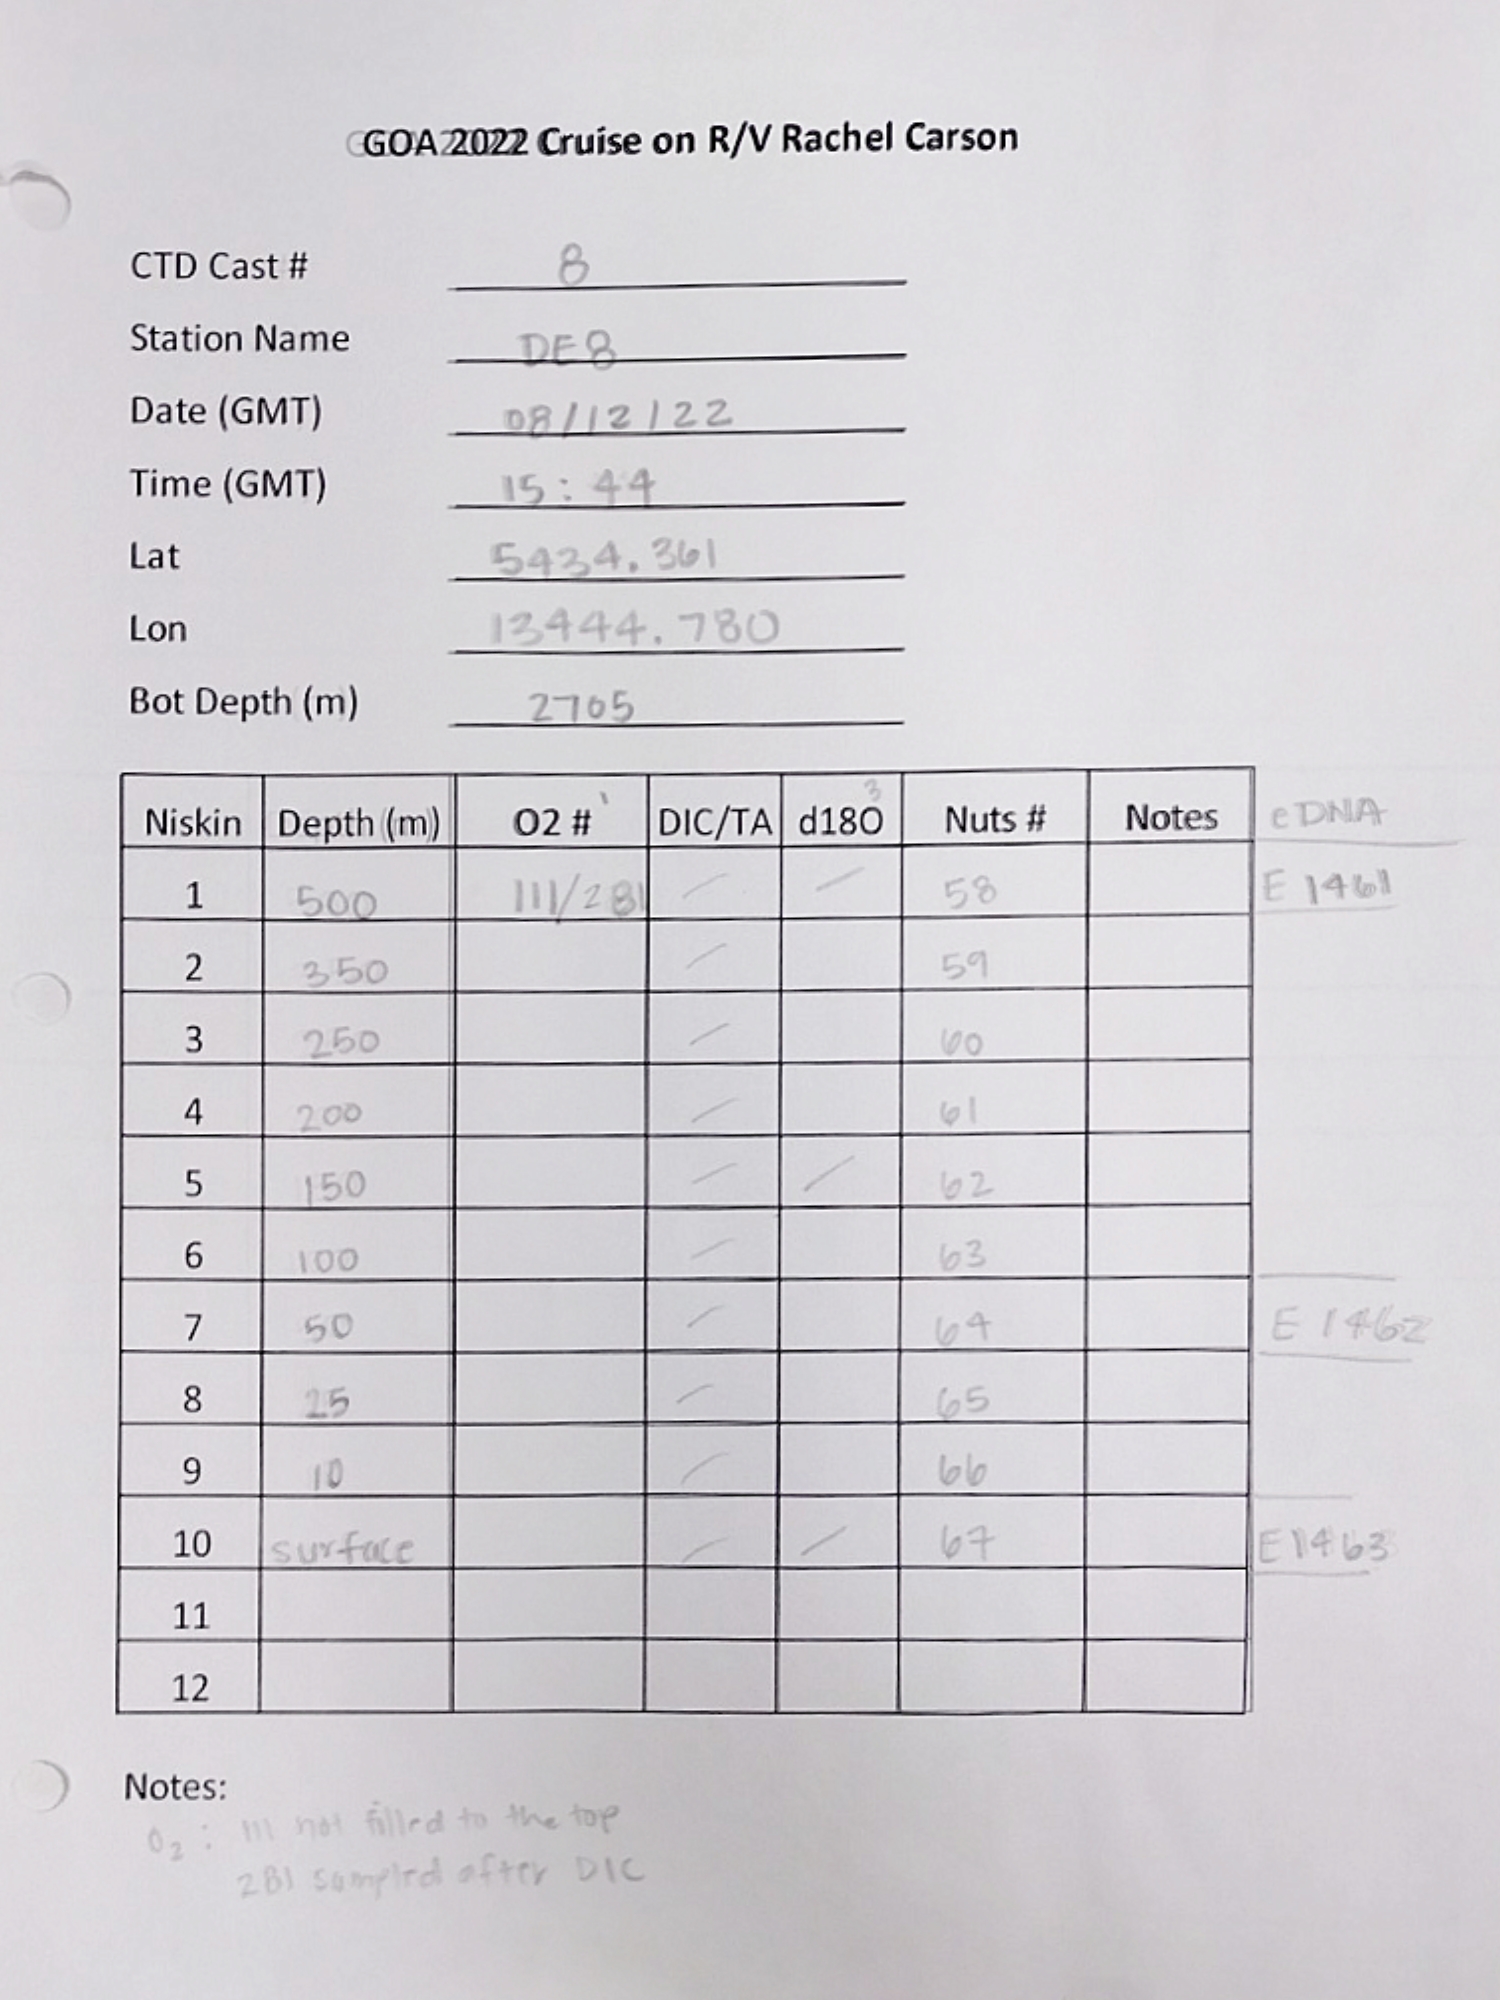 GOA 2022 Cruise on R/V Rachel Carson
CTD Cast # 8
Station Name DE8
Date (GMT) 08/12/22
Time (GMT) 15:44
Lat 5434.361
Lon 13444.780
Bot Depth (m) 2705
Niskin Depth (m) O2 # 1 DIC/TA d18O 3 Nuts # Notes eDNA
1 500 111/281 / / 58 E 1461
2 350 / 59
3 250 / 60
4 200 / 61
5 150 / / 62
6 100 / 63
7 50 / 64 E 1462
8 25 / 65
9 10 / 66
10 surface / / 67 E1463
11
12
Notes:
O2: 111 not filled to the top
281 sampled after DIC